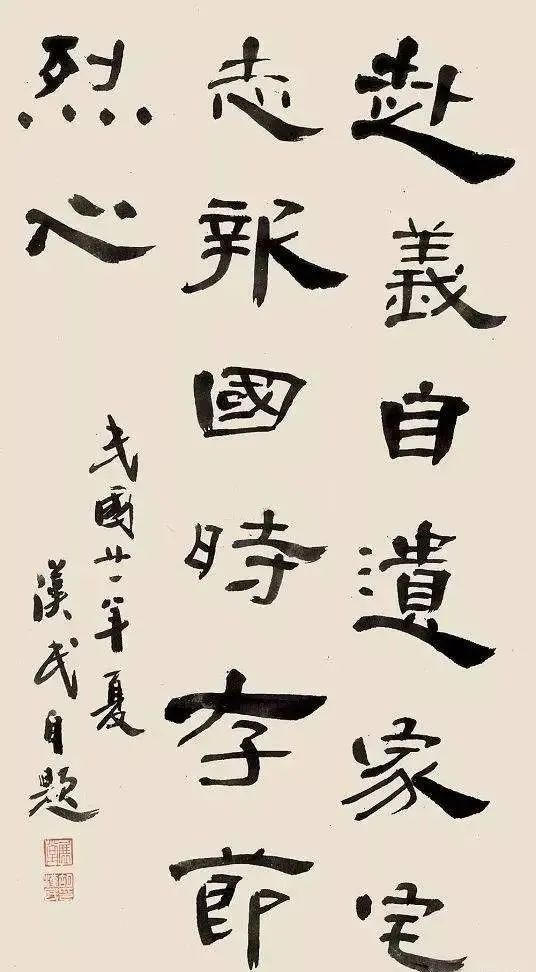 赴義自遺家宅
志報國時存節
烈心
民國廿一年夏
漢民自題